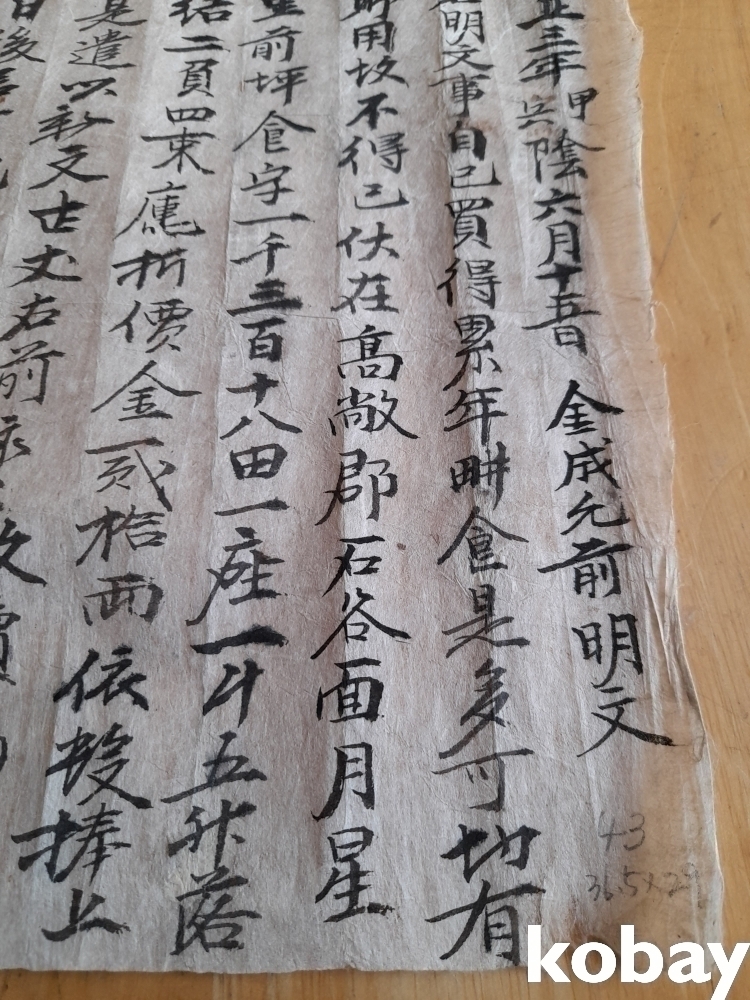 正三年甲寅陰六月十五日 金成允前明文
明文事自己買得累年畊食是多可切有
用故不得已伏在高敞郡石谷面月星
里前坪食字一千三百十八田一座一斗五升落
結二負四束㢠折價金貳拾両依數捧上
是遣以新文丈右前
後
43
36.5×29
kobay